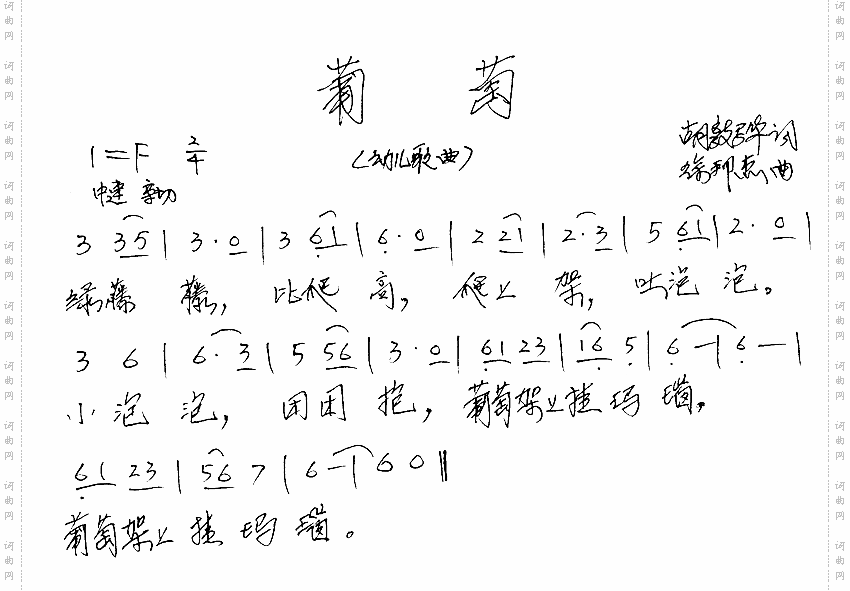 葡萄
1=F 2/4
(幼儿歌曲)
胡敦骅词
徐邦杰曲
中速 亲切
3 35 | 3·0 | 3 61 | 6·0 | 2 21 | 2·3 | 5 61 | 2·0 |
绿藤藤，比爬高，爬上架，吐泡泡。
3 6 | 6·3 | 5 56 | 3·0 | 61 23 | 16 5 | 6 — | 6 — |
小泡泡，团团抱，葡萄架上挂玛瑙，
61 23 | 56 7 | 6 — | 6 0 ‖
葡萄架上挂玛瑙。
词曲网